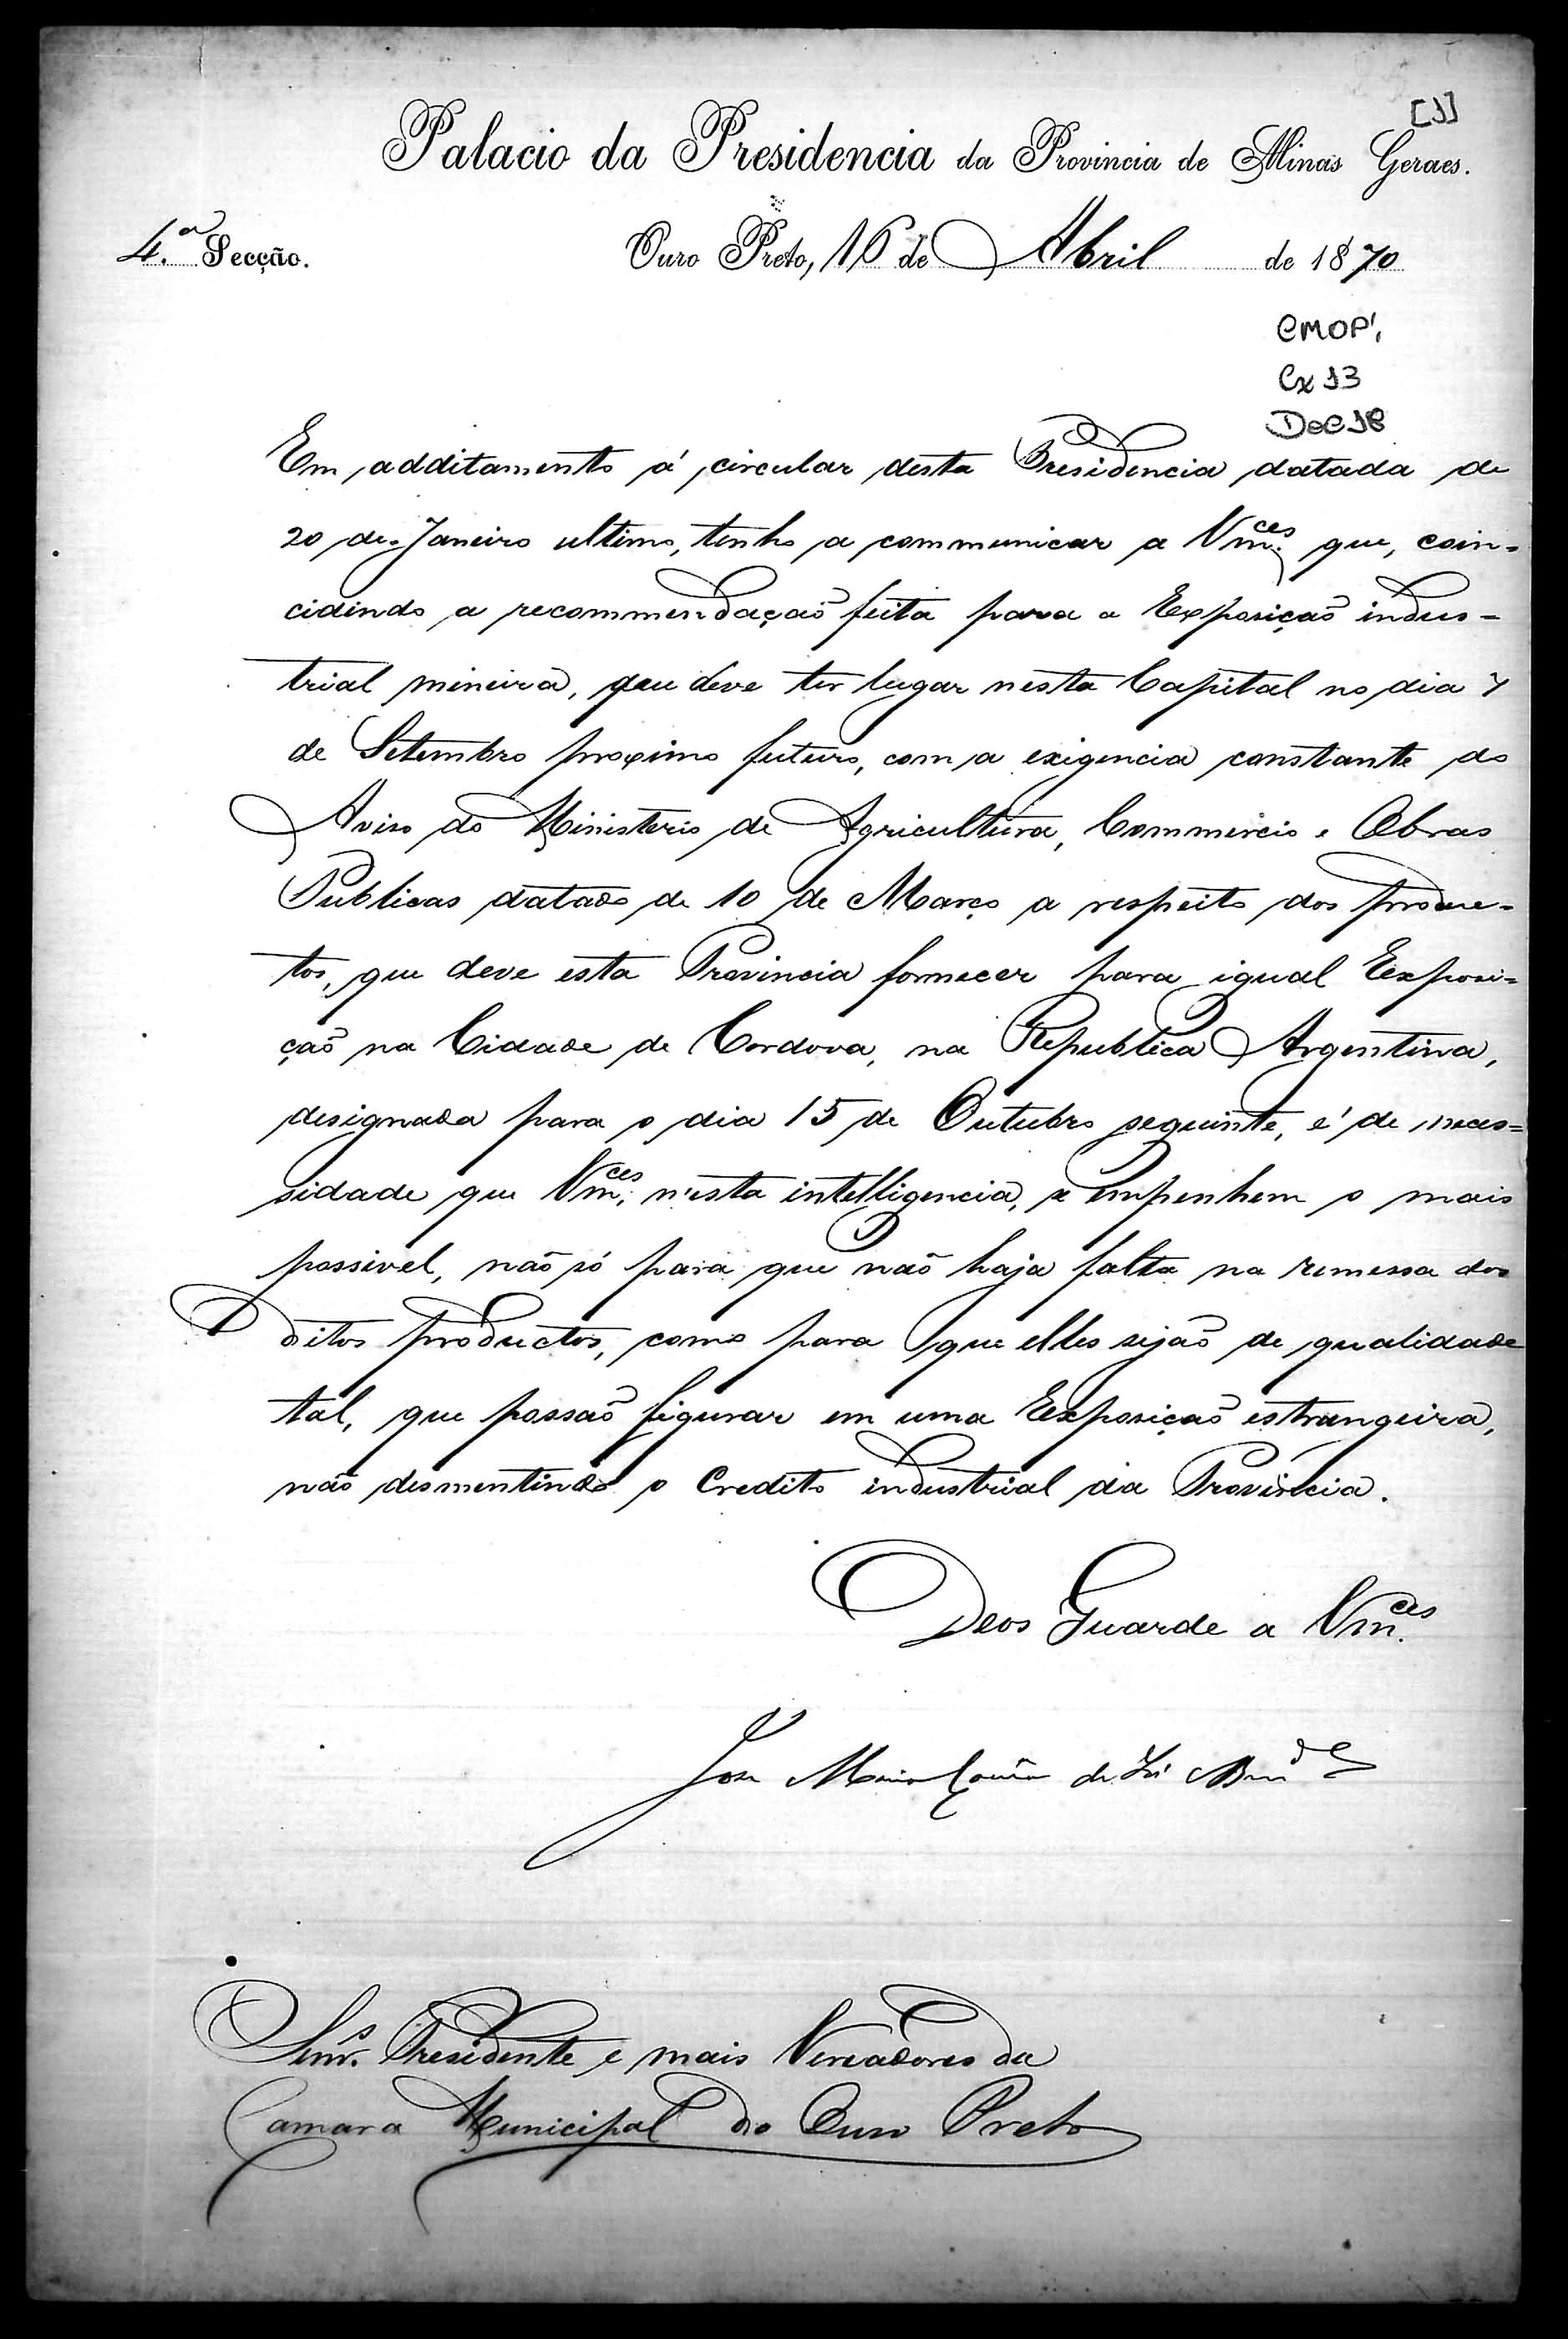 [1]
Palacio da Presidencia da Provincia de Minas Geraes.
4.ª Secção.
Ouro Preto, 16 de Abril de 1870
CMOP,
Cx 13
Doc 18
Em additamento á circular desta Presidencia datada de
20 de Janeiro ultimo, tenho a communicar a Vm.ces que, coin-
cidindo a recommendação feita para a Exposição indus-
trial mineira, que deve ter lugar nesta Capital no dia 7
de Setembro proximo futuro, com a exigencia constante do
Aviso do Ministerio de Agricultura, Commercio e Obras
Publicas datado de 10 de Março a respeito dos produc-
tos, que deve esta Provincia fornecer para igual Exposi-
ção na Cidade de Cordova, na Republica Argentina,
designada para o dia 15 de Outubro seguinte, é de neces-
sidade que Vm.ces n'esta intelligencia, se empenhem o mais
possivel, não só para que não haja falta na remessa dos
ditos productos, como para que elles sejão de qualidade
tal, que possão figurar em uma Exposição estrangeira,
não desmentindo o Credito industrial da Provincia.
Deos Guarde a Vm.ces
José Maria Corrêa de Sá
Snrs. Presidente e mais Vereadores da
Camara Municipal do Ouro Preto